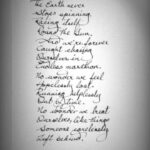 The Earth never
Stops spinning,
Racing itself
Round the Sun,
And we're forever
Caught chasing
Ourselves in
Endless marathon.
No wonder we feel
Hopelessly lost
Running helplessly
But to lose.
No wonder we treat
Ourselves like things
Someone carelessly
Left behind.